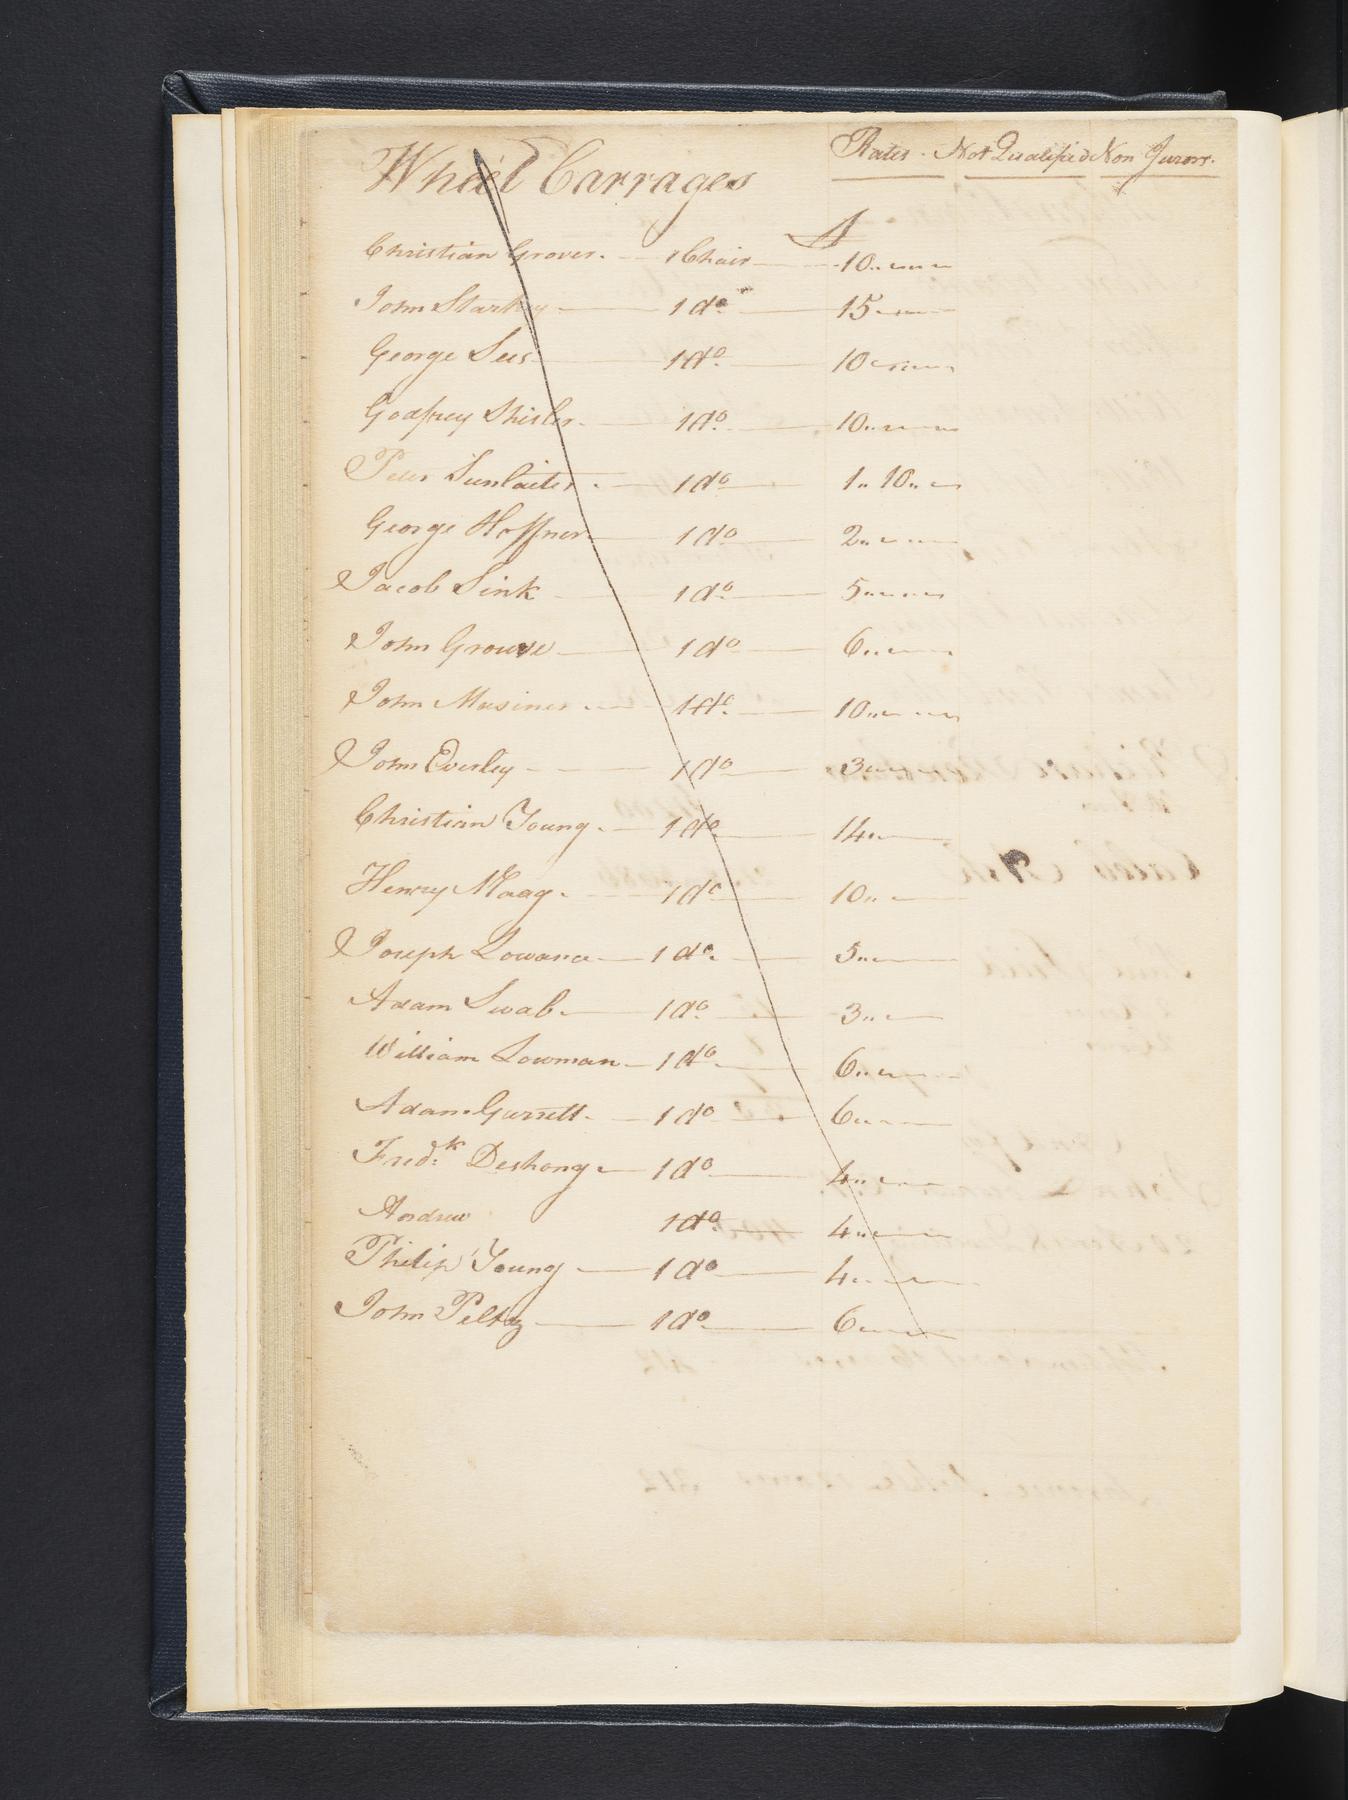 Wheel Carrages Rates. Not Qualified Non Jurors.
Christian Grover. 1 Chair 10
John Starkey 1 do 15
George Sees 1 do 10
Godfrey Shisler 1 do 10
Peter Sunlaiter 1 do 1.. 10..
George Hoffner 1 do 2..
Jacob Sink 1 do 5
John Grouse 1 do 6
John Musiner 1 do 10
John Everley 1 do 3
Christian Young 1 do 14
Henry Maag 1 do 10
Joseph Lowance 1 do 5
Adam Swab 1 do 3
William Lowman 1 do 6
Adam Gurrell 1 do 6
Fredk Deshong 1 do 4
Andrew 1 do 4
Philip Young 1 do 4
John Peltz 1 do 6